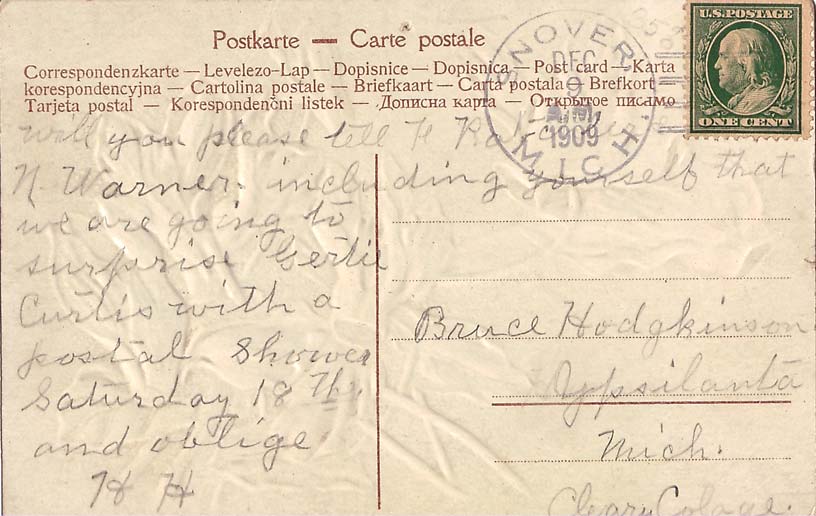 Postkarte — Carte postale
Correspondenzkarte — Levelezo-Lap — Dopisnice — Dopisnica — Post card — Karta
korespondencyjna — Cartolina postale — Briefkaart — Carta postala — Brefkort
Tarjeta postal — Korespondenčni listek — Дописна карта — Открытое писамо
U.S. POSTAGE
ONE CENT
SNOVER
DEC
9
1909
MICH.
will you please tell
N. Warner. including yourself that
we are going to
surprise Gertie
Curtis with a
postal Shower
Saturday 18 Th.
and oblige
H H
Bruce Hodgkinson
Ypsilanta
Mich.
Cleary Colage.